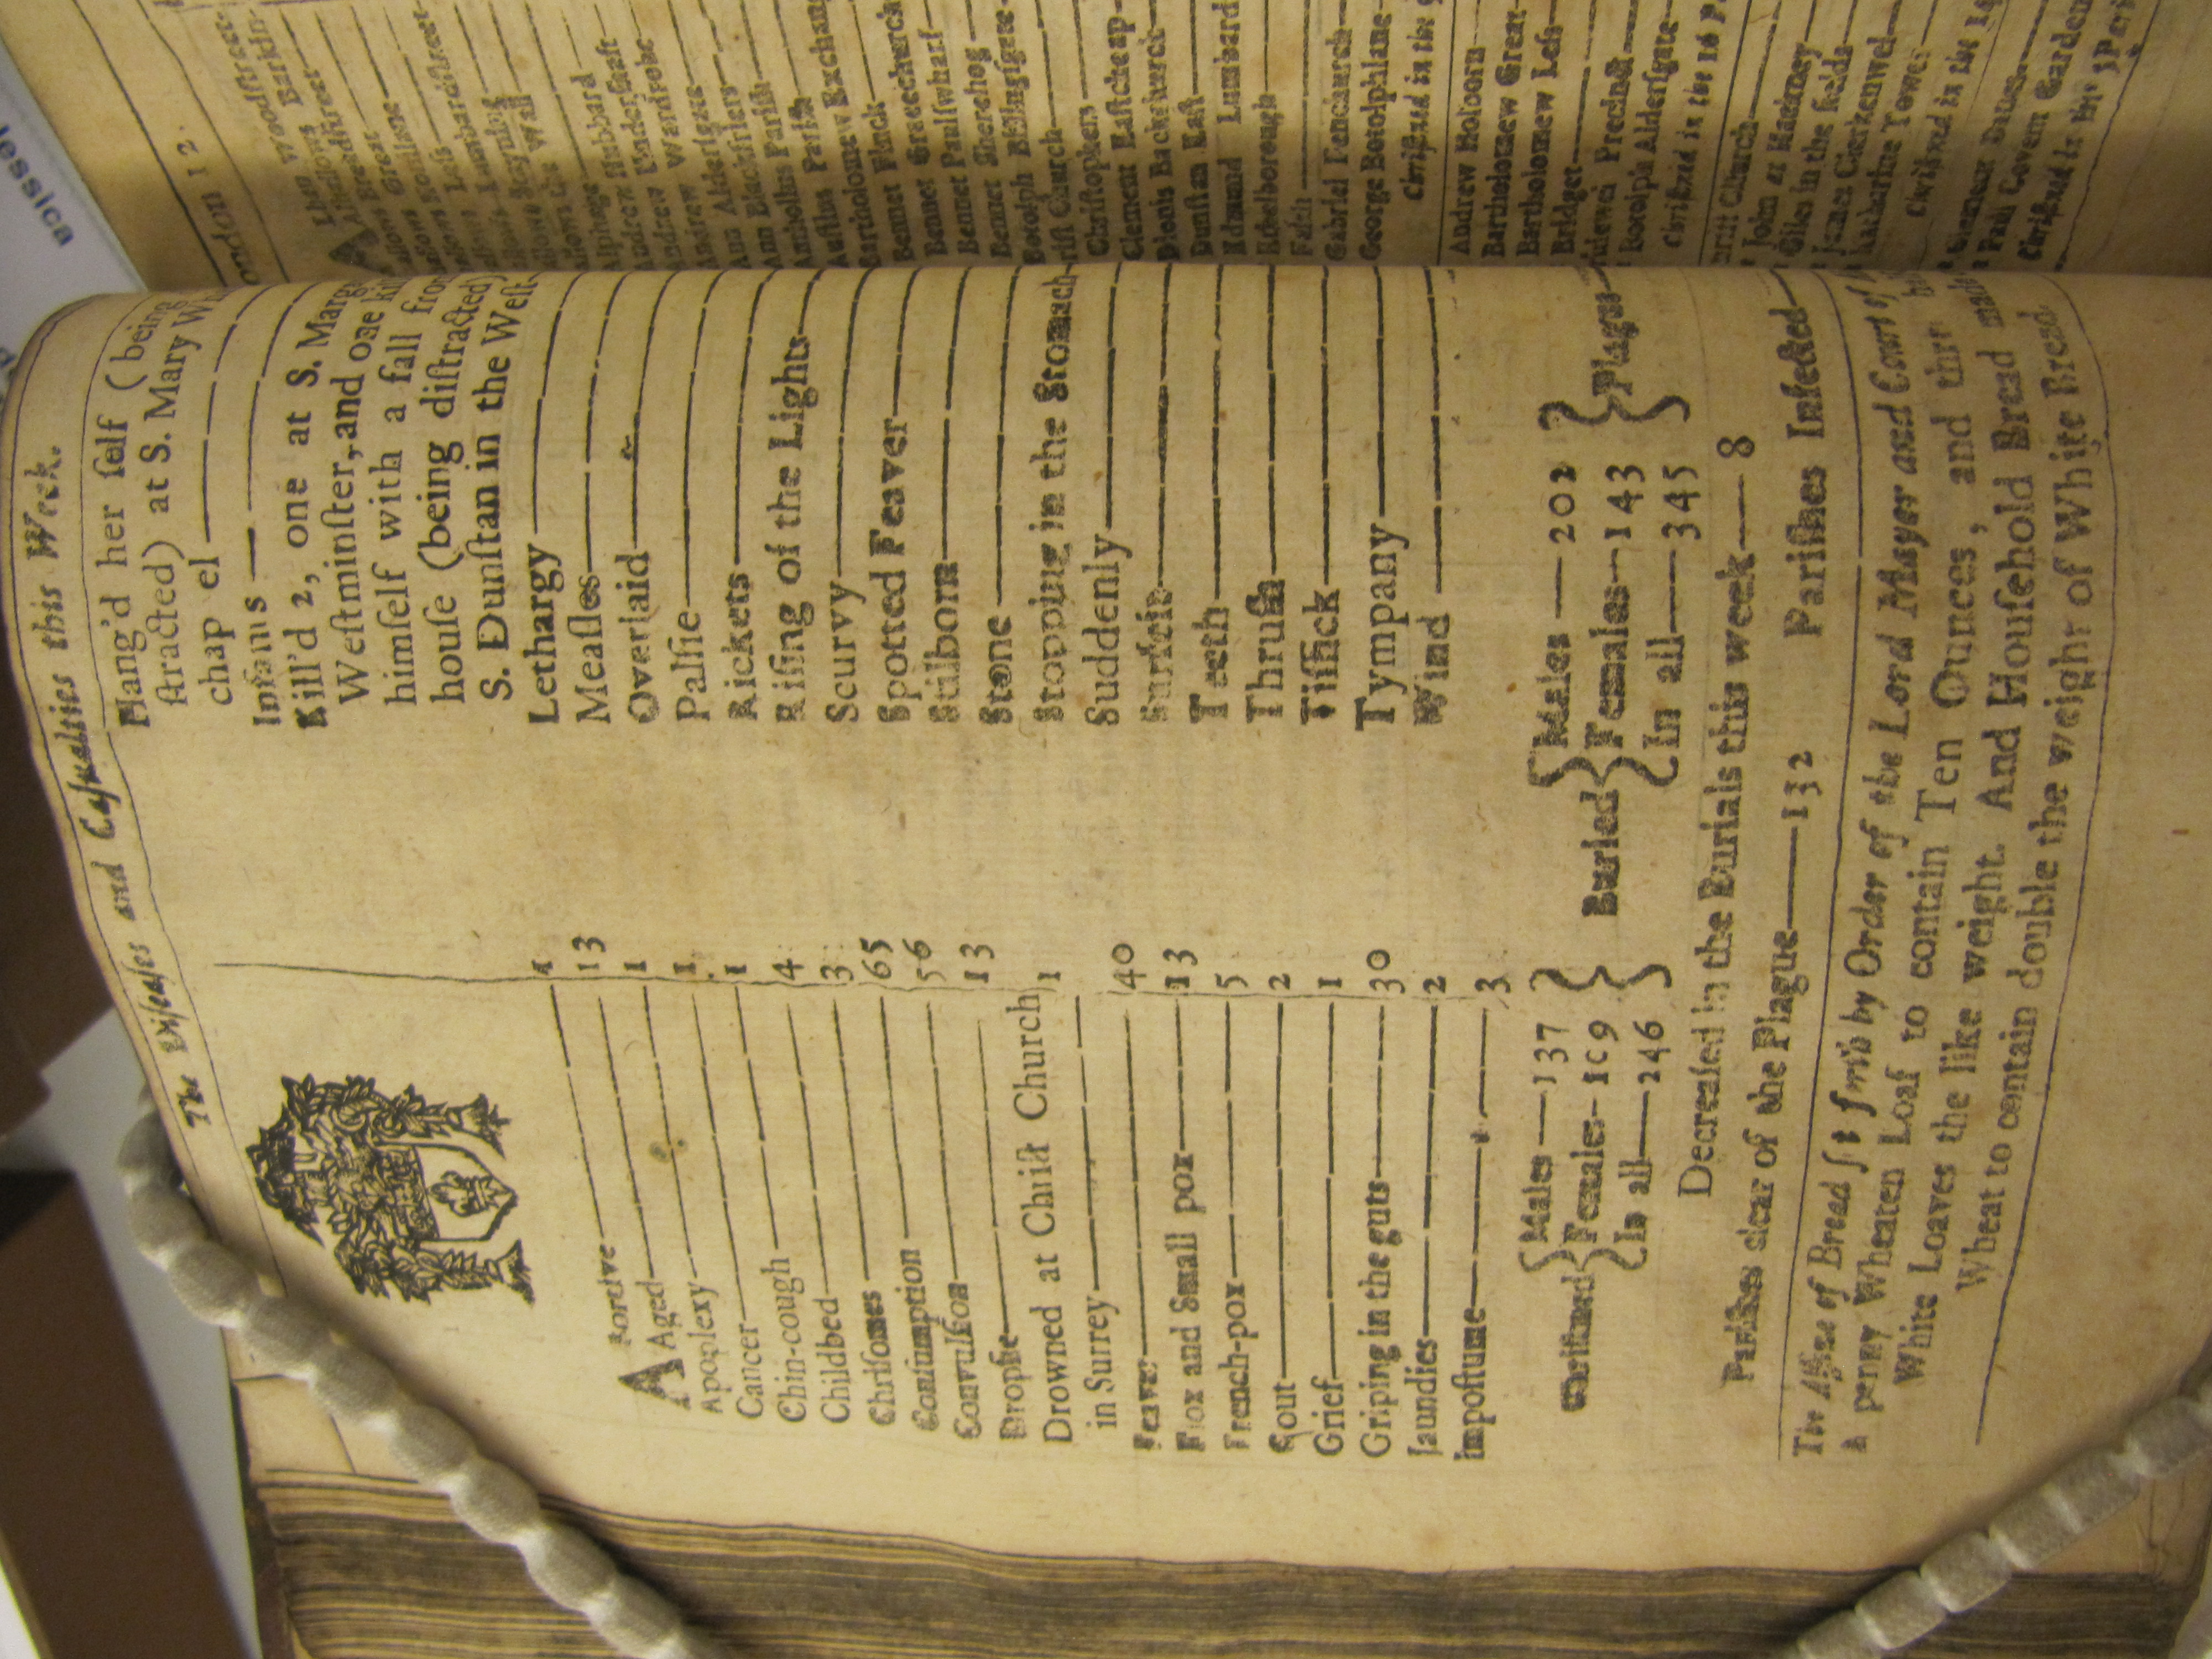 The Diseases and Casualties this Week.
Abortive 1
Aged 13
Apoplexy 1
Cancer 1
Chin-cough 1
Childbed 4
Chrisomes 3
Consumption 65
Convulsion 56
Dropsie 13
Drowned at Christ Church
in Surrey 1
Feaver 40
Flox and Small pox 13
French-pox 5
Gout 2
Grief 1
Griping in the guts 30
Jaundies 2
Impostume 3
Hang'd her ſelf (being
ſtracted) at S. Mary Wh
chap el
Infants
Kill'd 2, one at S. Marg
Weſtminſter, and one kil
himſelf with a fall fro
houſe (being diſtracted)
S. Dunſtan in the Weſt
Lethargy
Meaſles
Overlaid
Palſie
Rickets
Riſing of the Lights
Scurvy
Spotted Feaver
Stilborn
Stone
Stopping in the Stomach
Suddenly
Surfeit
Teeth
Thruſh
Tiſſick
Tympany
Wind
Chriſtned
Males 137
Females 109
In all 246
Buried
Males 202
Females 143
In all 345
Plague
Decreaſed in the Burials this week 8
Pariſhes clear of the Plague 132 Pariſhes Infected
The Aſſize of Bread ſet forth by Order of the Lord Mayor and Court of
A penny Wheaten Loaf to contain Ten Ounces, and three
White Loaves the like weight. And Houſehold Bread made
Wheat to contain double the weight of White Bread
ondon 12
Woodſtreet
Alhallows Barkin
Breadſtreet
Great
Alphage
Hubbard
Underſhaft
Andrew Wardrobe
Ann Alderſgate
Ann Blackfriers
Antholins Pariſh
Auſtins Pariſh
Bartholomew Exchang
Bennet Finck
Bennet Gracechurch
Bennet Paulſwharf
Bennet Sherehog
Botolph Billingſgate
riſt Church
Chriſtophers
Clement Eaſtcheap
Dionis Backchurch
Dunſtan Eaſt
Edmund Lumbard
Ethelborough
Faith
Gabriel Fenchurch
George Botolphlane
Chriſtned in the 9
Andrew Holborn
Bartholomew Great
Bartholomew Leſs
Bridget
Precinct
Botolph Alderſgate
Chriſtned in the 16 P
Church
John at Hackney
Giles in the fields
James Clerkenwel
Katharine Tower
Chriſtned in the
Clement Danes
Paul Covent Garden
Chriſtned in the 5 Pari
Jessica